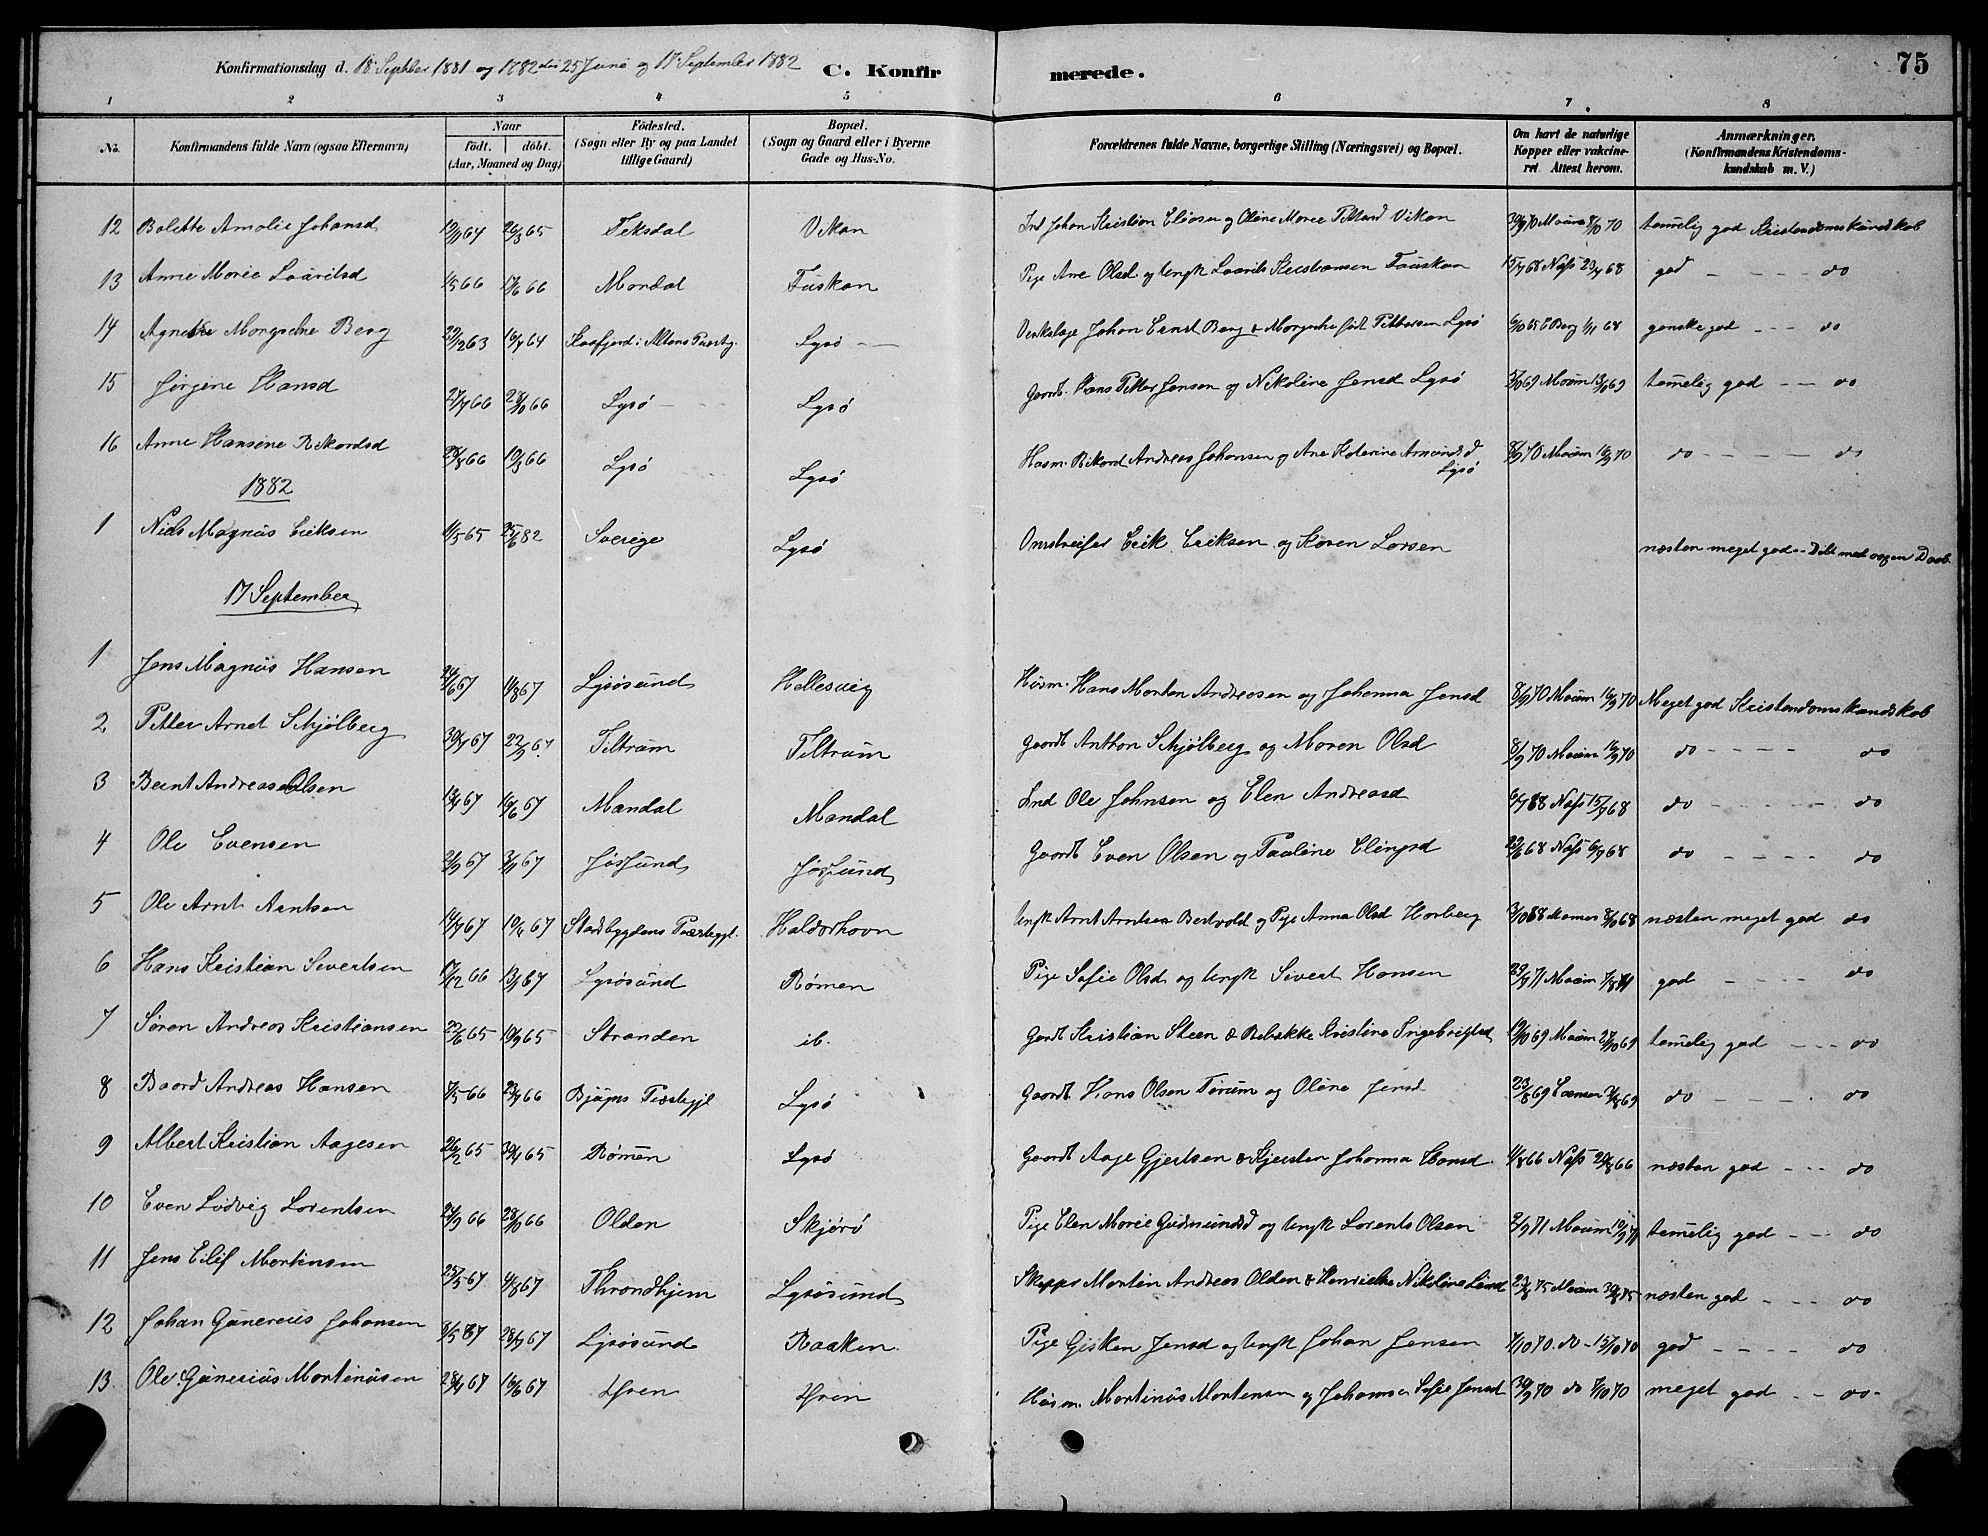 Konfirmationsdag d. 18 September 1881 og 1882 den 25 June og 17 September 1882 C. Konfir merede. 75
1 2 3 4 5 6 7 8
No. Konfirmandens fulde Navn (ogsaa Efternavn) Naar født. døbt. (Aar, Maaned og Dag) Fødested. (Sogn eller By og paa Landet tillige Gaard) Bopæl. (Sogn og Gaard eller i Byerne Gade og Hus-No. Forældrenes fulde Navne, borgerlige Stilling (Næringsvei) og Bopæl. Om havt de naturlige Kopper eller vakcineret. Attest herom. Anmærkninger. (Konfirmandens Kristendomskundskab m. V.)
12 Bolette Amalie Johansd 19/11 64 26/3 65 Teksdal Vikan Ind Johan Kristian Eliasen og Oline Marie Pettersd Vikan 30/9 70 Maum 8/10 70 temelig god Kristendomskundskab
13 Anne Marie Lauritsd 1/5 66 17/6 66 Mandal Fuskan Pige Ane Olsd. og Ungk Laurits Kristiansen Fauskan 15/7 68 Nass 23/7 68 god - - - - do
14 Agnethe Margrethe Berg 29/12 63 16/4 64 Kaafjord i Altens Præstg. Lysø Johan Ernst Berg & Margrethe født Pettersen Lysø 6/10 65 E Berg 1/11 68 ganske god - - - do
15 Jørgine Hansd 27/7 66 28/10 66 Lysø Lysø Gaardb. Hans Petter Jensen og Nikoline Jensd Lysø 5/10 69 Maum 13/10 69 temelig god - - do
16 Anne Hansine Rikardsd 28/8 66 Lysø Lysø Husm. Rikard Andreas Johansen og Ane Katerine Amundsd Lysø 8/9 70 Maum 16/9 70 do - - - - do
1882
1 Niels Magnus Eriksen 11/5 65 25/6 82 Sverige Lysø Omstreifer Erik Eriksen og Karen Larsen næsten meget god - Døbt med egen Daab.
17 September
1 Jens Magnus Hansen 24/6 67 11/8 67 Lysøsund Hellesvig Husm. Hans Morten Andreasen og Johanna Jensd 8/9 70 Maum 16/9 70 Meget god Kristendomskundskab
2 Petter Arnet Schjølberg 30/7 67 22/9 67 Teltrum Teltrum Gaardb Anthon Schjølberg og Maren Olsd 8/9 70 Maum 16/9 70 do - - - - do
3 Bernt Andreas Olsen 13/4 67 16/6 67 Mandal Mandal Ind Ole Johnsen og Elen Andreasd 6/7 68 Nass 15/7 68 do - - - - - do
4 Ole Evensen 2/9 67 3/11 67 Jøssund Jøssund Gaardb Even Olsen og Pauline Elingsd 29/6 68 Nass 6/7 68 do - - - - do
5 Ole Arnt Arntsen 14/4 67 Stadsbygdens Præstegjl. Haldorhavn Ungk Arnt Arntsen Bertvold og Pige Anna Olsd Harberg næsten meget god do
6 Hans Kristian Sivertsen 17/12 66 Lysøsund Rømen Pige Sofie Olsd og Ungk Sivert Hansen 29/7 71 Maum 7/8 71 god - - - - do
7 Søren Andreas Kristiansen 23/6 65 10/9 65 Stranden ib. Gaardb Kristian Steen & Rebekke Kristine Ingebrigtsd 19/10 69 Maum 27/10 69 temelig god - - - do
8 Baard Andreas Hansen 7/5 66 Bjugns Præstegjl Lysø Gaardb. Hans Olsen Tørum og Oline Jensd 23/8 69 do - - - - do
9 Albert Kristian Aagesen 26/2 65 30/4 65 Rømen Lysø Gaardb Aage Gjertsen & Kjersten Johanna Hansd 1/8 66 Nass 20/8 66 næsten god - - - do
10 Even Ludvig Lorentsen 24/9 66 28/10 66 Olden Skjørø Pige Elen Marie Gudmundsd og Ungk Lorents Olsen 2/9 71 Maum 10/9 71 temelig god - - - do
11 Jens Eilif Mortensen 25/5 67 4/8 67 Throndhjem Lysøsund Skipper Morten Andreas Olden & Henriette Nikoline Lund 23/8 75 Maum 30/8 75 næsten god - - - do
12 Johan Gunerius Johansen 9/5 67 28/7 67 Lysøsund Raaken Pige Gisken Jensd og Ungk Johan Jensen 7/10 70 do - 15/10 70 god - - - - do
13. Ole Gunerius Martinusen 28/4 67 16/6 67 Hren Hren Husm. Martinus Mortensen og Johanna Sofie Jensd 30/9 70 do 7/10 70 meget god - - do -